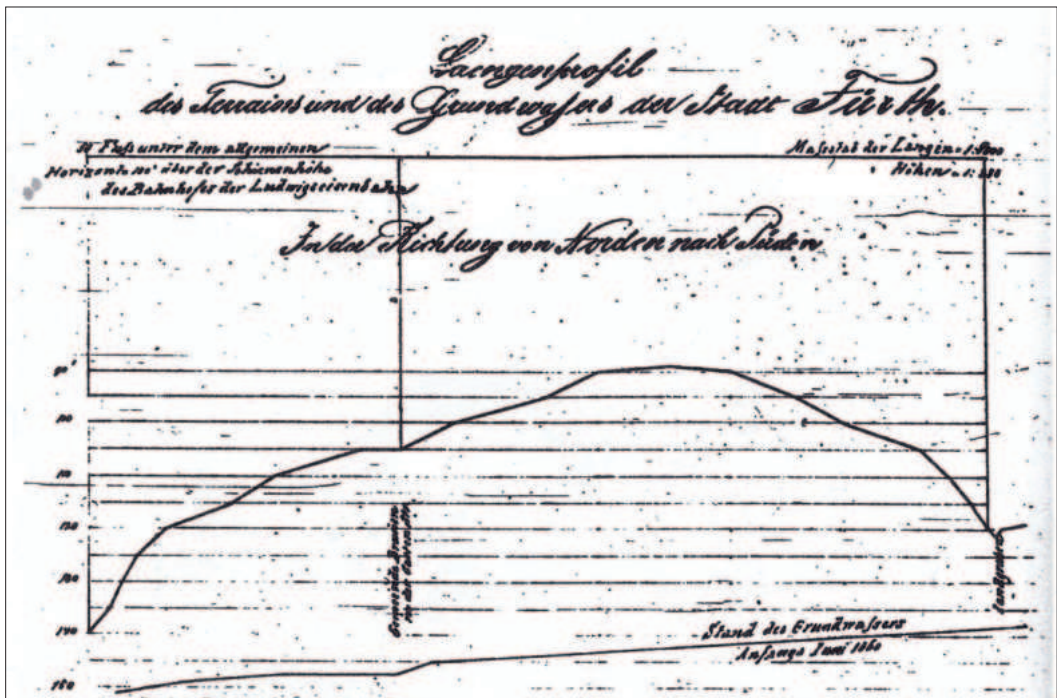 Laengenprofil
des Terrains und des Grundwassers der Stadt Fürth.
Fuss unter dem allgemeinen
Horizonte 100' über der Schienenhöhe
des Bahnhofes der Ludwigseisenbahn
Massstab der Längen = 1:5000
Höhen
In der Richtung von Norden nach Süden
90'
100
110
120
130
140
150
Gemeinde Brunnen
in der
Landgraben
Stand des Grundwassers
Anfangs Juni 1860